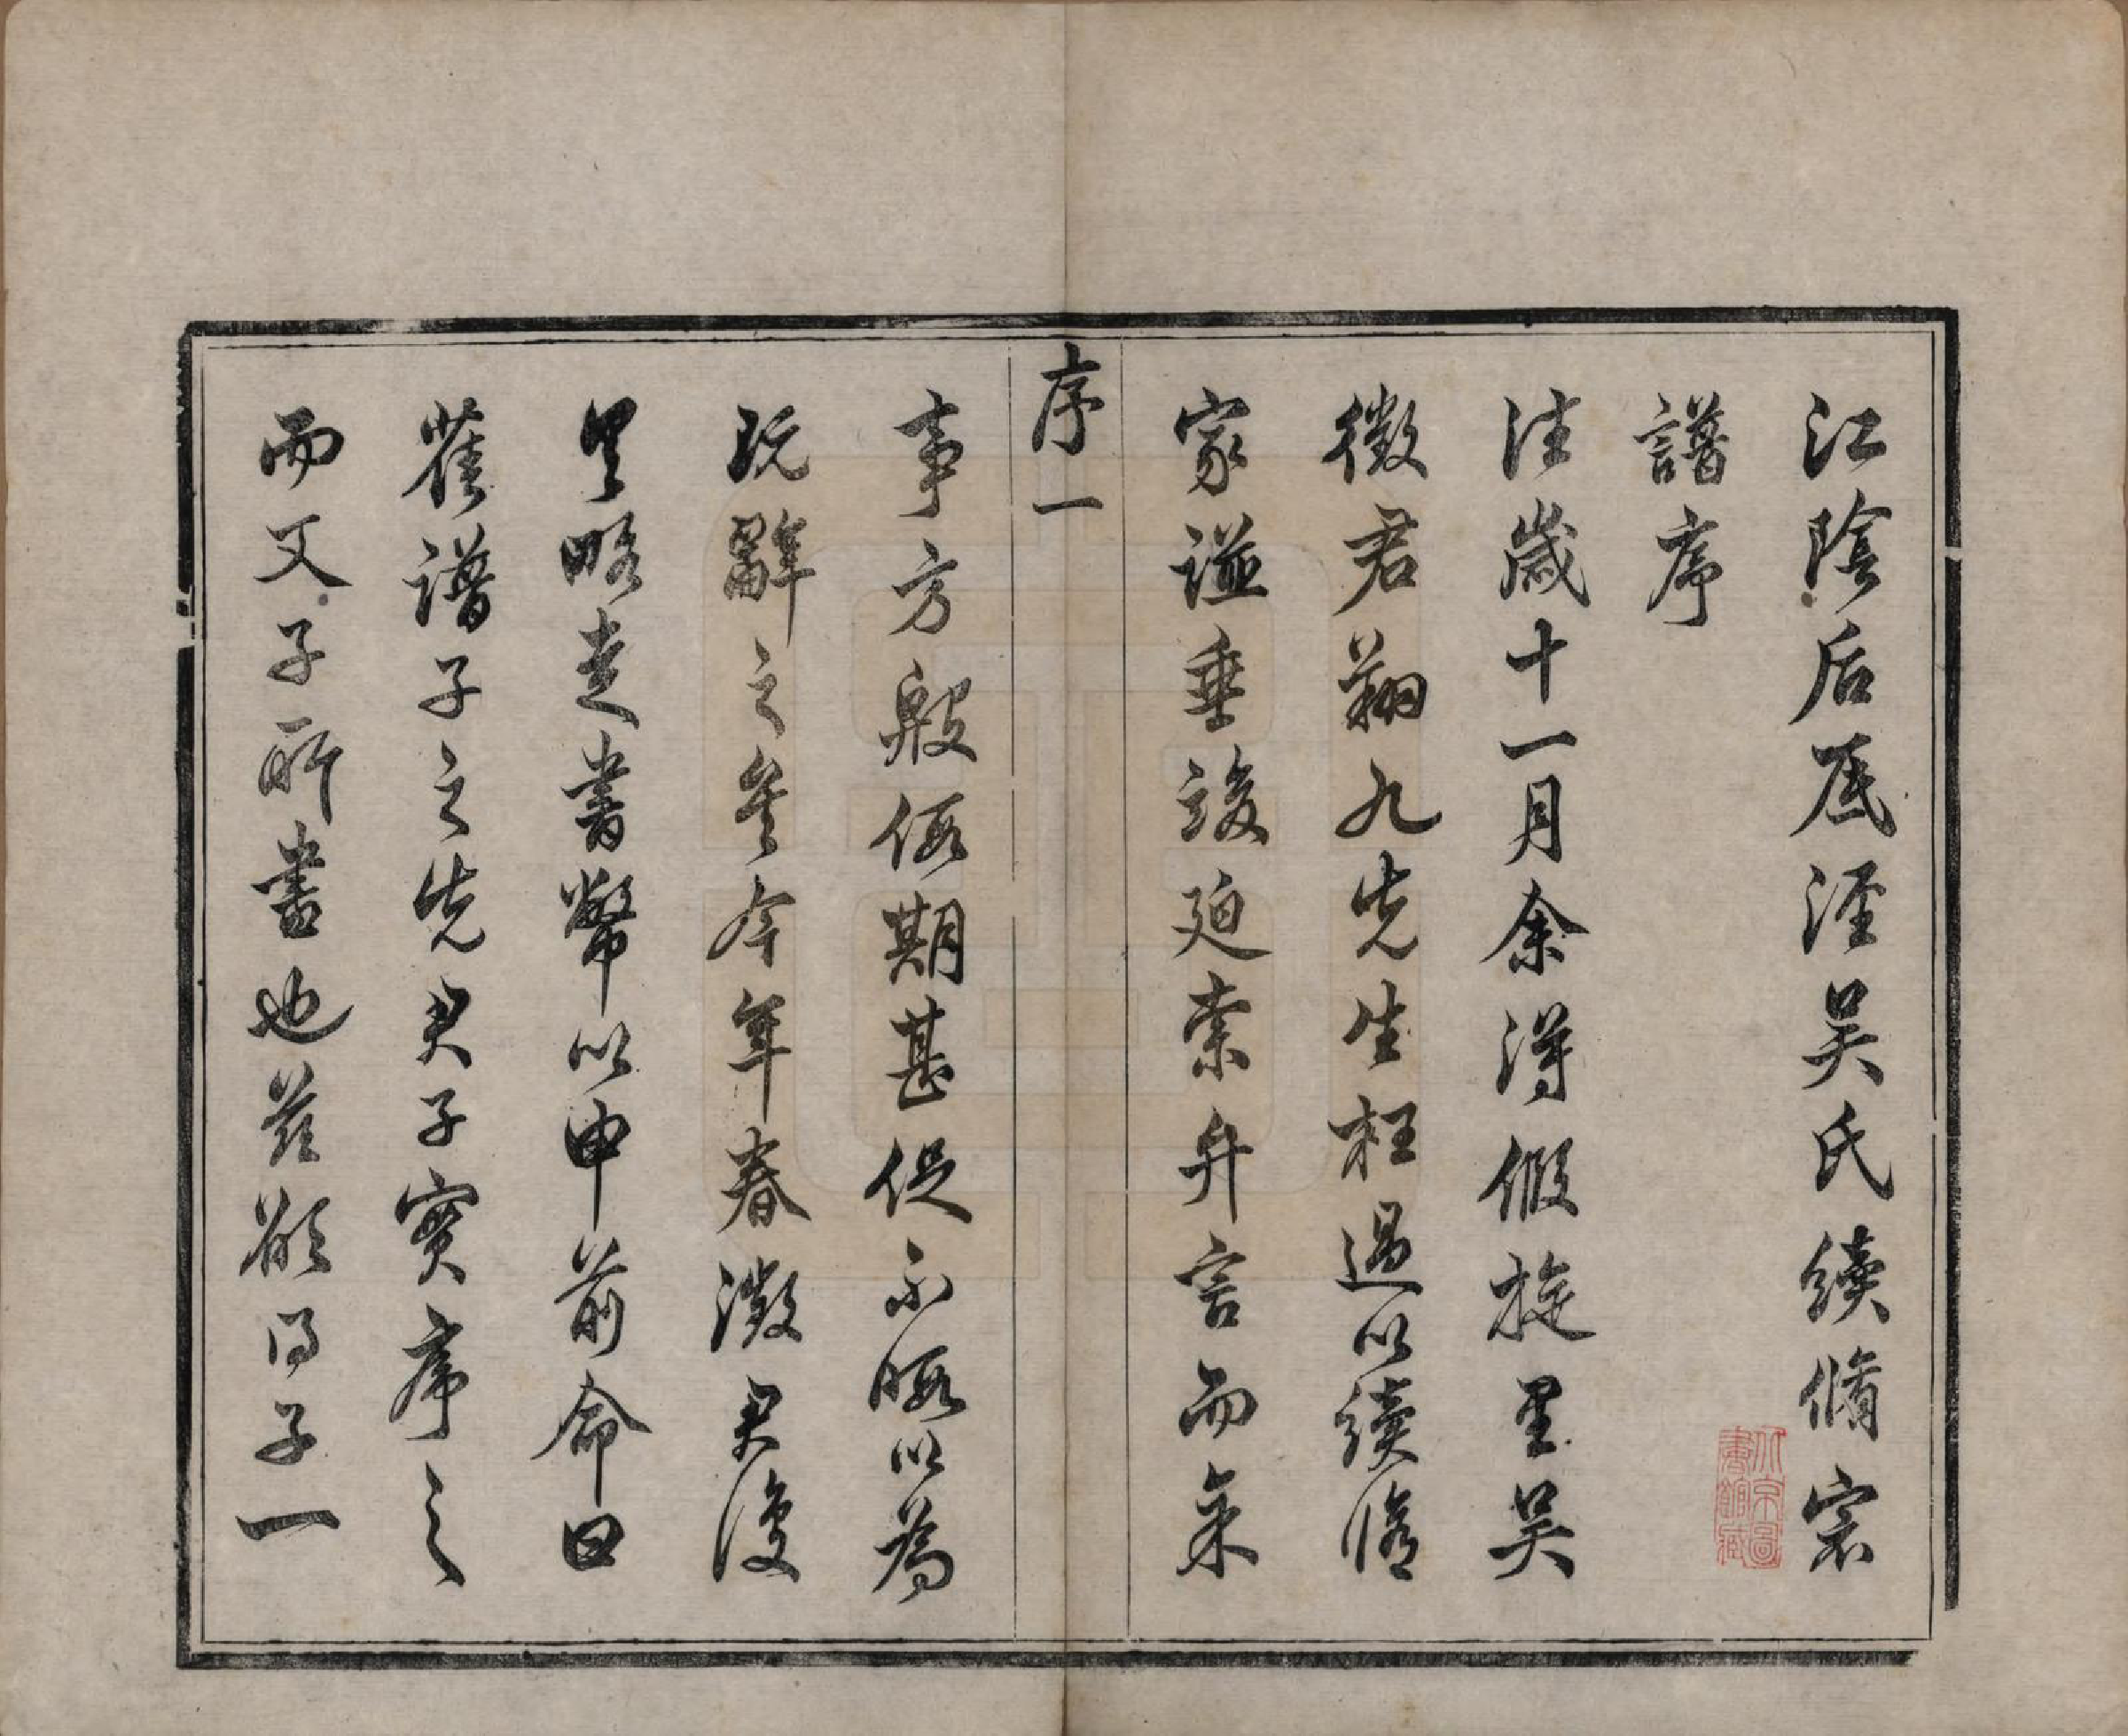 江陰后底涇吳氏續脩宗
譜序
往歲十一月余得假旋里吳
徵君翔九先生枉過以續脩
家譜垂竣廹索弁言而余
序一
事方殷假期甚促不暇以為
玩辭之矣今年春澂君復
里略走書幣以申前命曰
舊譜子之先君子實序之
而又子所書也茲欲得子一
北京圖書館藏